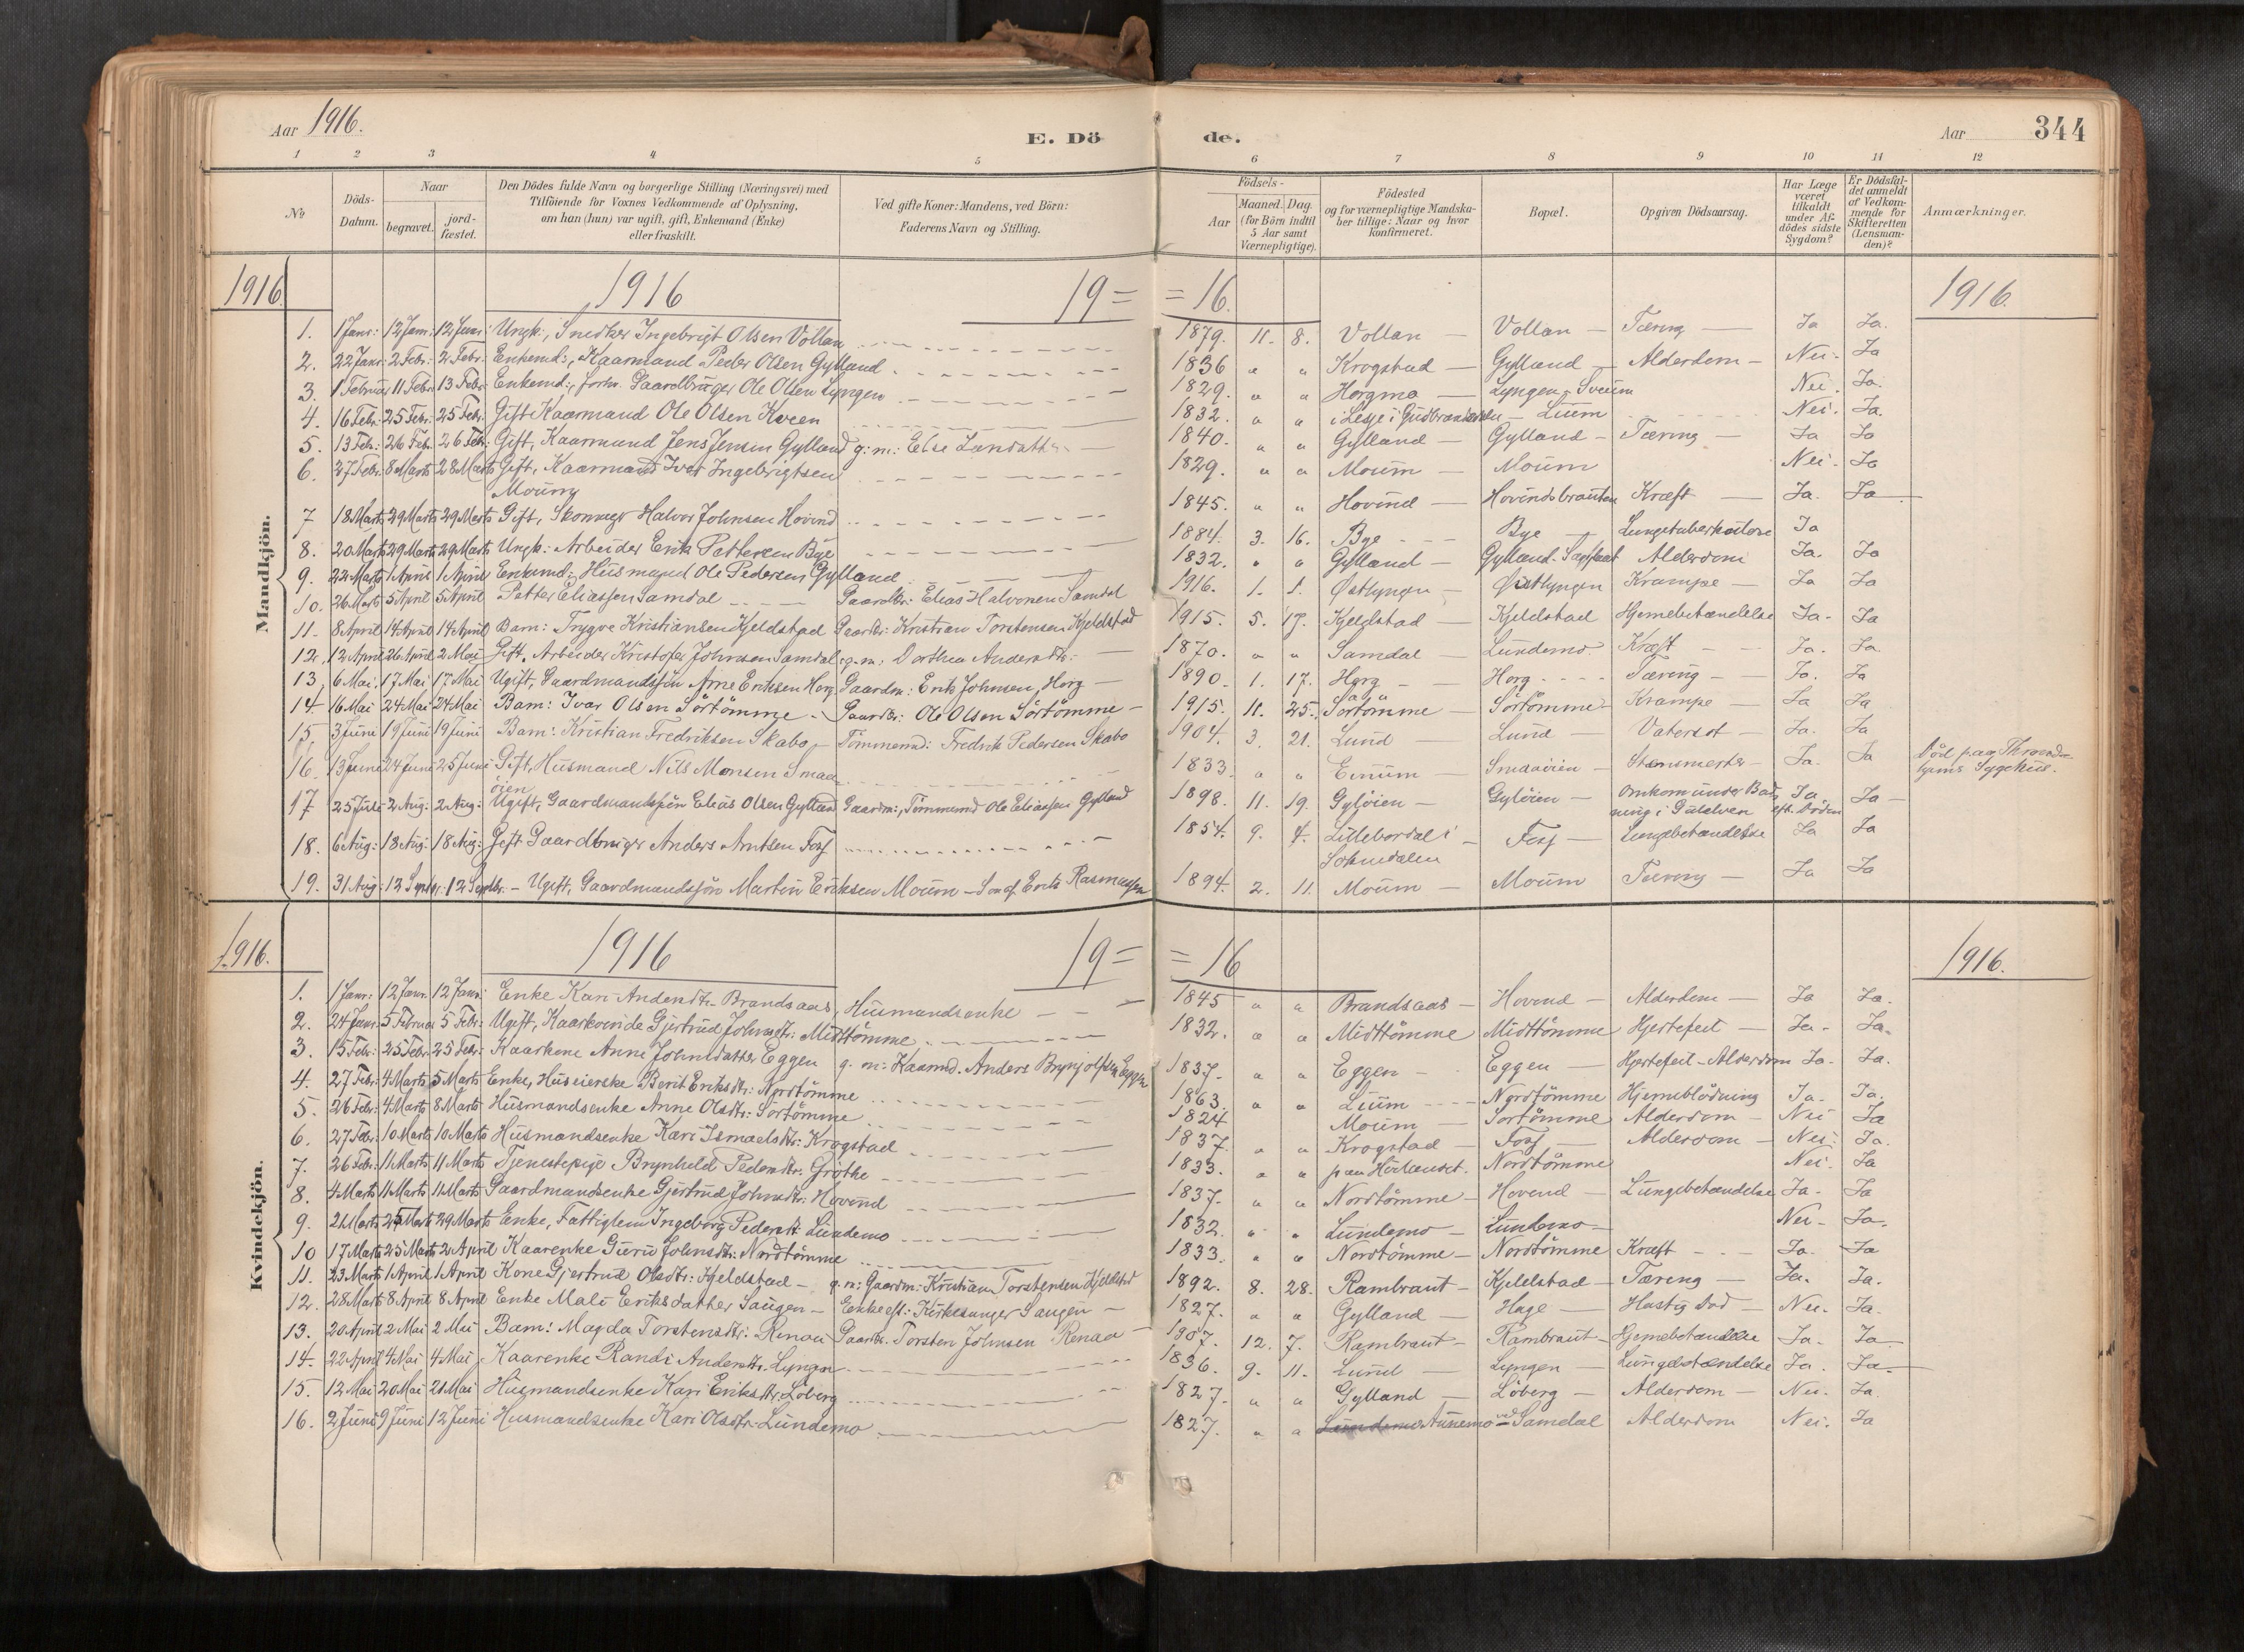 Aar 1916.
E. Dö de.
Aar 344
1 2 3 4 5 6 7 8 9 10 11 12
№
Döds-Datum.
Naar begravet. jordfæstet.
Den Dödes fulde Navn og borgerlige Stilling (Næringsvei) med Tilföiende for Voxnes Vedkommende af Oplysning, om han (hun) var ugift, gift, Enkemand (Enke) eller fraskilt.
Ved gifte Koner: Mandens, ved Börn: Faderens Navn og Stilling.
Födsels- Aar Maaned. Dag. (for Börn indtil 5 Aar samt Værnepligtige).
Födested og for værnepligtige Mandskaber tillige: Naar og hvor konfirmeret.
Bopæl.
Opgiven Dödsaarsag.
Har Læge været tilkaldt under Afdödes sidste Sygdom?
Er Dödsfaldet anmeldt af Vedkommende for Skifteretten (Lensmanden)?
Anmærkninger.
1916. 1916 19= =16. 1916.
Mandkjön.
1. 1 Janr: 12 Janr: 12 Janr: Ungk:, Snedker Ingebrigt Olsen Vollan 1879. 11. 8. Vollan — Vollan — Tæring — Ja Ja.
2. 22 Janr: 2 Febr: 2 Febr: Enkemd:, Kaarmand Peder Olsen Gylland 1836 " " Krogstad — Gylland — Alderdom — Nei. Ja
3. 1 Februar 11 Febr: 13 Febr: Enkemd:, forh. Gaardbruger Ole Olsen Lyngen 1829. " " Horgmo — Lyngen - Nei. Ja.
4. 16 Febr: 25 Febr: 25 Febr. Gift Kaarmand Ole Olsen Kveen 1832. " " i Lesje i Gudbrandsdalen — Luem Nei. Ja.
5. 13 Febr: 26 Febr: 26 Febr. Gift, Kaarmand Jens Jensen Gylland g: m: Else 1840. " " Gylland — Gylland — Tæring — Ja Ja
6. 27 Febr: 8 Marts 28 Marts Gift, Kaarmand Ivar Ingebrigtsen Moum 1829. " " Moum — Moum Nei. Ja
7 18 Marts 29 Marts 29 Marts Gift, Halvor Johnsen Hovind 1845. " " Hovind — Hovindsbrauten Kræft — Ja. Ja
8. 20 Marts 29 Marts 29 Marts Ungk: Arbeider Erik Pettersen Bye 1884. 3. 16. Bye - - - Bye — Lungetuberkulose Ja
9. 22 Marts 1 April 1 April Enkemd:, Husmand Ole Pedersen Gylland 1832. " " Gylland — Gylland- Alderdom Ja. Ja
10. 26 Marts 5 April 5 April Petter Eliassen Samdal Gaardbr: Elias Halvorsen Samdal 1916. 1. 1. Østlyngen — Østlyngen Krampe — Ja Ja
11. 8 April 14 April 14 April Barn: Trygve Kristiansen Kjeldstad Gaardbr: Kristian Torstensen Kjeldstad 1915. 5. 17. Kjeldstad — Kjeldstad Hjernebetændelse Ja. Ja
12. 12 April 26 April 2 Mai Gift, Arbeider Kristofer Johnsen Samdal g. m: Dorthea Andersdtr: 1870. " " Samdal — Lundemo Kræft — Ja. Ja.
13. 6 Mai. 17 Mai 17 Mai Ugift, Gaardmandssön Arne Eriksen Horg Gaardm: Erik Johnsen Horg — 1890. 1. 17. Horg - Horg - - - - Tæring — Ja. Ja
14. 16 Mai 24 Mai 24 Mai Barn: Ivar Olsen Sörtömme - Gaardbr: Ole Olsen Sörtömme - 1915. 11. 25. Sörtömme — Sörtömme — Krampe — Ja Ja
15. 3 Juni 19 Juni 19 Juni Barn: Kristian Fredriksen Skabo - Tömmermd: Fredrik Pedersen Skabo 1904. 3. 21. Lund — Lund — Vatersot — Ja. Ja
16. 13 Juni 24 Juni 25 Juni Gift, Husmand Nils Monsen Smaaöien 1833. " " Enum — Smaaöien — Ja. Ja Död paa Throndhjems Sygehus.
17 25 Juli 2 Aug: 2 Aug: Ugift, Gaardmandssön Elias Olsen Gylland Gaardm:, Tömmermd Ole Eliassen Gylland 1898. 11. 19. Gylöien — Gylöien — Omkom under Badning i Gulelven Ja eft. Döden Ja
18. 6 Aug: 18 Aug: 18 Aug: Gift Gaardbruger Anders Arntsen Foss 1854. 9. 4. Lillebordal i Soknedalen — Foss — Lungebetændelse Ja Ja
19. 31 Aug: 12 Septbr: 12 Septbr. - Ugift, Gaardmandssön Martin Eriksen Moum - Sön af Erik Rasmussen 1894. 2. 11. Moum — Moum Tæring — Ja Ja
1916. 1916 19= =16 1916.
Kvindekjön.
1. 1 Janr: 12 Janr: 12 Janr: Enke Kari Andersdtr. Brandsaas, Husmandsenke — 1845 " " Brandsaas — Hovend — Alderdom — Ja Ja.
2. 24 Janr: 5 Februar 5 Febr: Ugift, Kaarkvinde Gjertrud Johnsdtr: Midttömme 1832. " " Midttömme Midttömme Hjertefeil — Ja. Ja.
3. 15 Febr: 25 Febr: 25 Febr: Kaarkone Anne Johnsdatter Eggen g. m: Kaarmd. Anders Brynjolfsen Eggen 1837. " " Eggen — Eggen — Hjertefeil - Alderdom Ja. Ja.
4. 27 Febr: 4 Marts 5 Marts Enke, Huseierske Berit Eriksdtr: Nordtömme 1863. " " Lium - - - Nordtömme Hjerneblödning Ja. Ja.
5. 26 Febr: 4 Marts 8 Marts Husmandsenke Anne Olsdtr: Sörtömme 1824. Moum — Sortömme Alderdom — Nei Ja
6. 27 Febr: 10 Marts 10 Marts Husmandsenke Kari Ismaelsdtr: Krogstad 1837. " " Krogstad — Foss — Alderdom — Nei: Ja.
7. 26 Febr: 11 Marts 11 Marts Tjenestepige Brynhild Pedersdtr. Grothe 1833. " " paa Nordtömme Nei. Ja
8. 4 Marts 11 Marts 11 Marts Gaardmandsenke Gjertrud Johnsdtr: Hovend 1837. " " Nordtömme — Hovend — Lungebetændelse Ja. Ja
9. 21 Marts 25 Marts 29 Marts Enke, Fattiglem Ingeborg Pedersdtr. Lundemo 1832. " " Lundemo — Lundemo — Nei — Ja.
10 17 Marts 25 Marts 2 April Kaarenke Guru Johnsdtr: Nordtömme 1833. " " Nordtömme — Nordtömme Kræft — Ja. Ja
11. 23 Marts 1 April 1 April Kone Gjertrud Olsdtr: Kjeldstad - g. m: Gaardm: Kristian Torstensen Kjeldstad 1892. 8. 28. Rambraut — Kjeldstad — Tæring — Ja. Ja.
12. 28 Marts 8 April 8 April Enke Mali Eriksdatter Saugen - Enke eft: Kirkesanger Saugen — 1827. " " Gylland — Hage — Hastig Död — Nei. Ja.
13. 20 April 2 Mai 2 Mai Barn: Magda Torstensdtr: Renaa Gaardbr. Torsten Johnsen Renaa — 1907. 12. 7. Rambraut — Rambraut — Hjernebetændelse Ja. Ja
14. 22 April 4 Mai 4 Mai Kaarenke Randi Andersdtr. Lyngen 1836. 9. 11. Lund — Lyngen — Lungebetændelse Ja. Ja
15. 12 Mai 20 Mai 21 Mai Husmandsenke Kari Eriksdtr. Löberg 1827. " " Gylland — Löberg — Alderdom — Nei. Ja.
16. 2 Juni 9 Juni 12 Juni Husmandsenke Kari Olsdtr. Lundemo 1827. " " ved Samdal Alderdom Nei. Ja